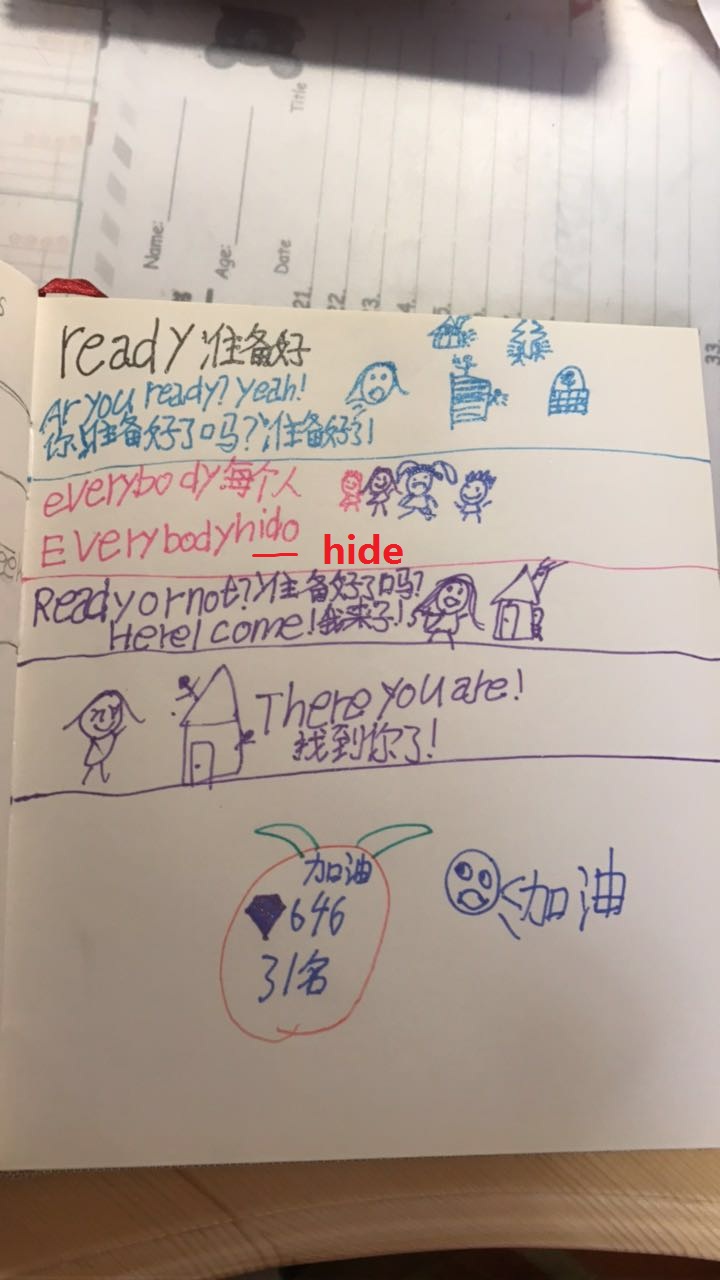 Title
Name:
Age:
Date
21.
22.
3.
4.
5.
33.
ready 准备好
Ar you ready? Yeah!
你准备好了吗?准备好了!
everybody 每个人
Everybody hido
hide
Ready or not? 准备好了吗?
Here I come! 我来了!
There you are!
找到你了!
加油
646
31名
加油